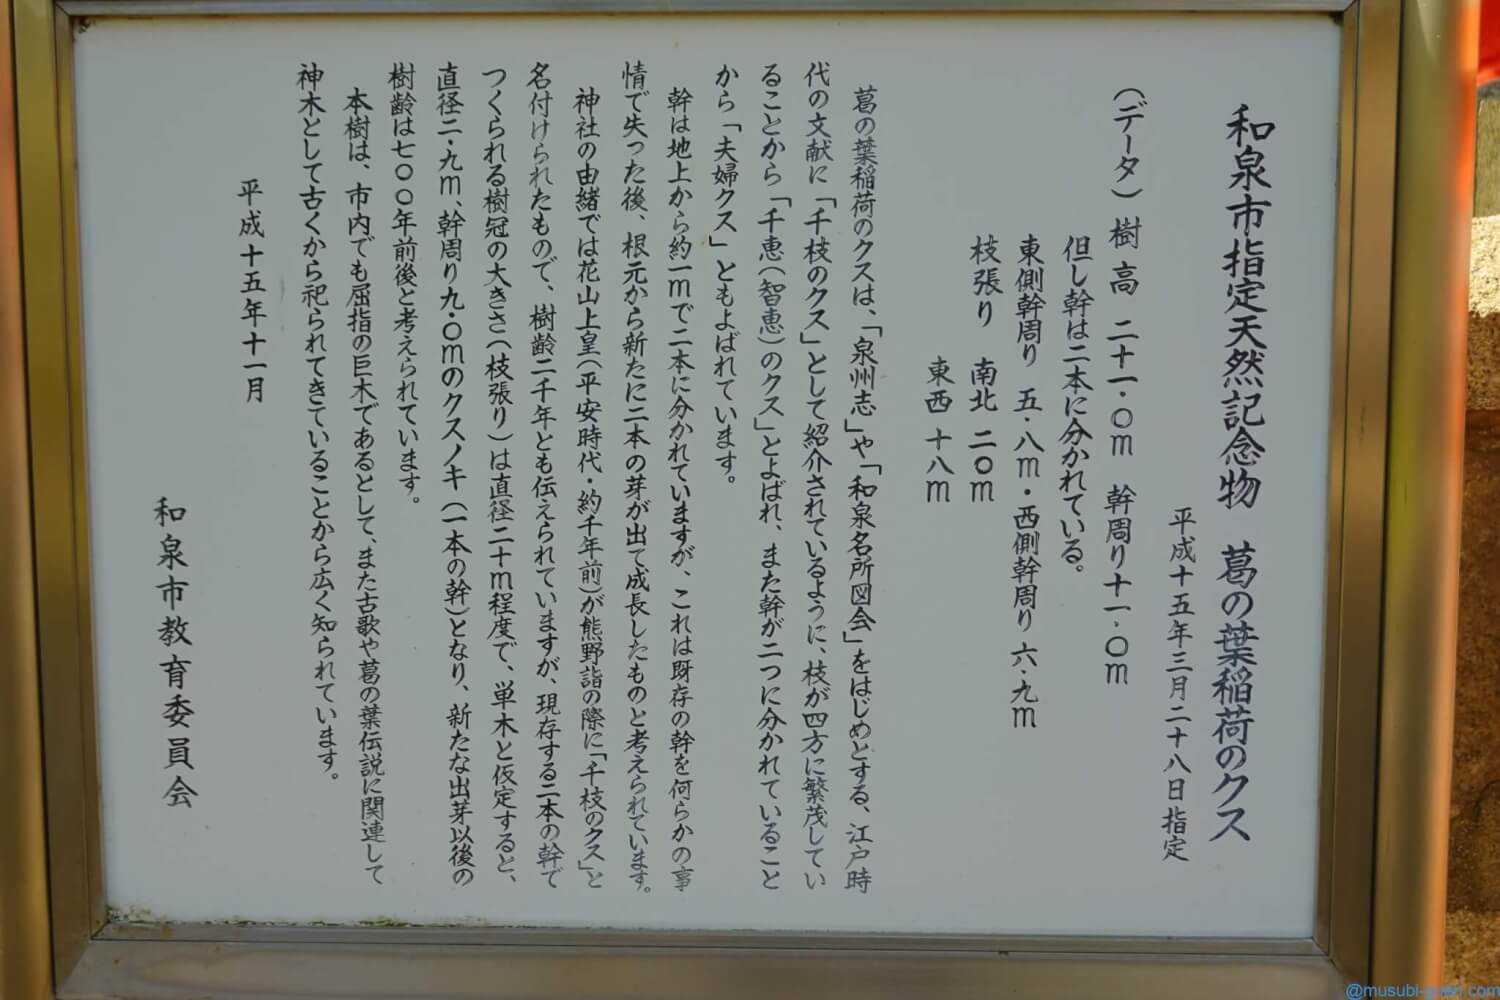 和泉市指定天然記念物　葛の葉稲荷のクス
平成十五年三月二十八日指定
（データ）樹高　二十一・〇ｍ　幹周り十一・〇ｍ
但し幹は二本に分かれている。
東側幹周り　五・八ｍ・西側幹周り　六・九ｍ
枝張り　南北　二〇ｍ
東西　十八ｍ
葛の葉稲荷のクスは、「泉州志」や「和泉名所図会」をはじめとする、江戸時
代の文献に「千枝のクス」として紹介されているように、枝が四方に繁茂してい
ることから「千恵（智恵）のクス」とよばれ、また幹が二つに分かれていること
から「夫婦クス」ともよばれています。
幹は地上から約一ｍで二本に分かれていますが、これは既存の幹を何らかの事
情で失った後、根元から新たに二本の芽が出て成長したものと考えられています。
神社の由緒では花山上皇（平安時代・約千年前）が熊野詣の際に「千枝のクス」と
名付けられたもので、樹齢二千年とも伝えられていますが、現存する二本の幹で
つくられる樹冠の大きさ（枝張り）は直径二十ｍ程度で、単木と仮定すると、
直径二・九ｍ、幹周り九・〇ｍのクスノキ（一本の幹）となり、新たな出芽以後の
樹齢は七〇〇年前後と考えられています。
本樹は、市内でも屈指の巨木であるとして、また古歌や葛の葉伝説に関連して
神木として古くから祀られてきていることから広く知られています。
平成十五年十一月
和泉市教育委員会